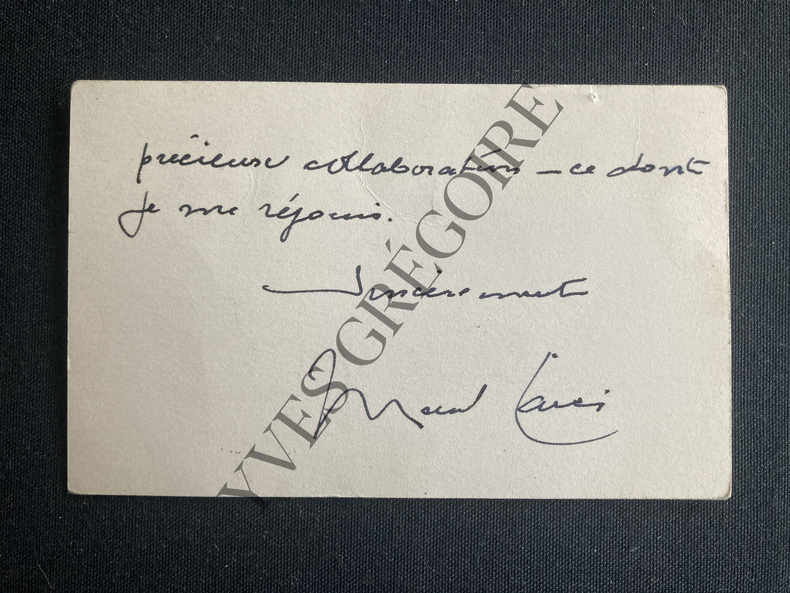 précieuse collaboration – ce dont
je me réjouis.
Sincèrement
YVES GRÉGOIRE